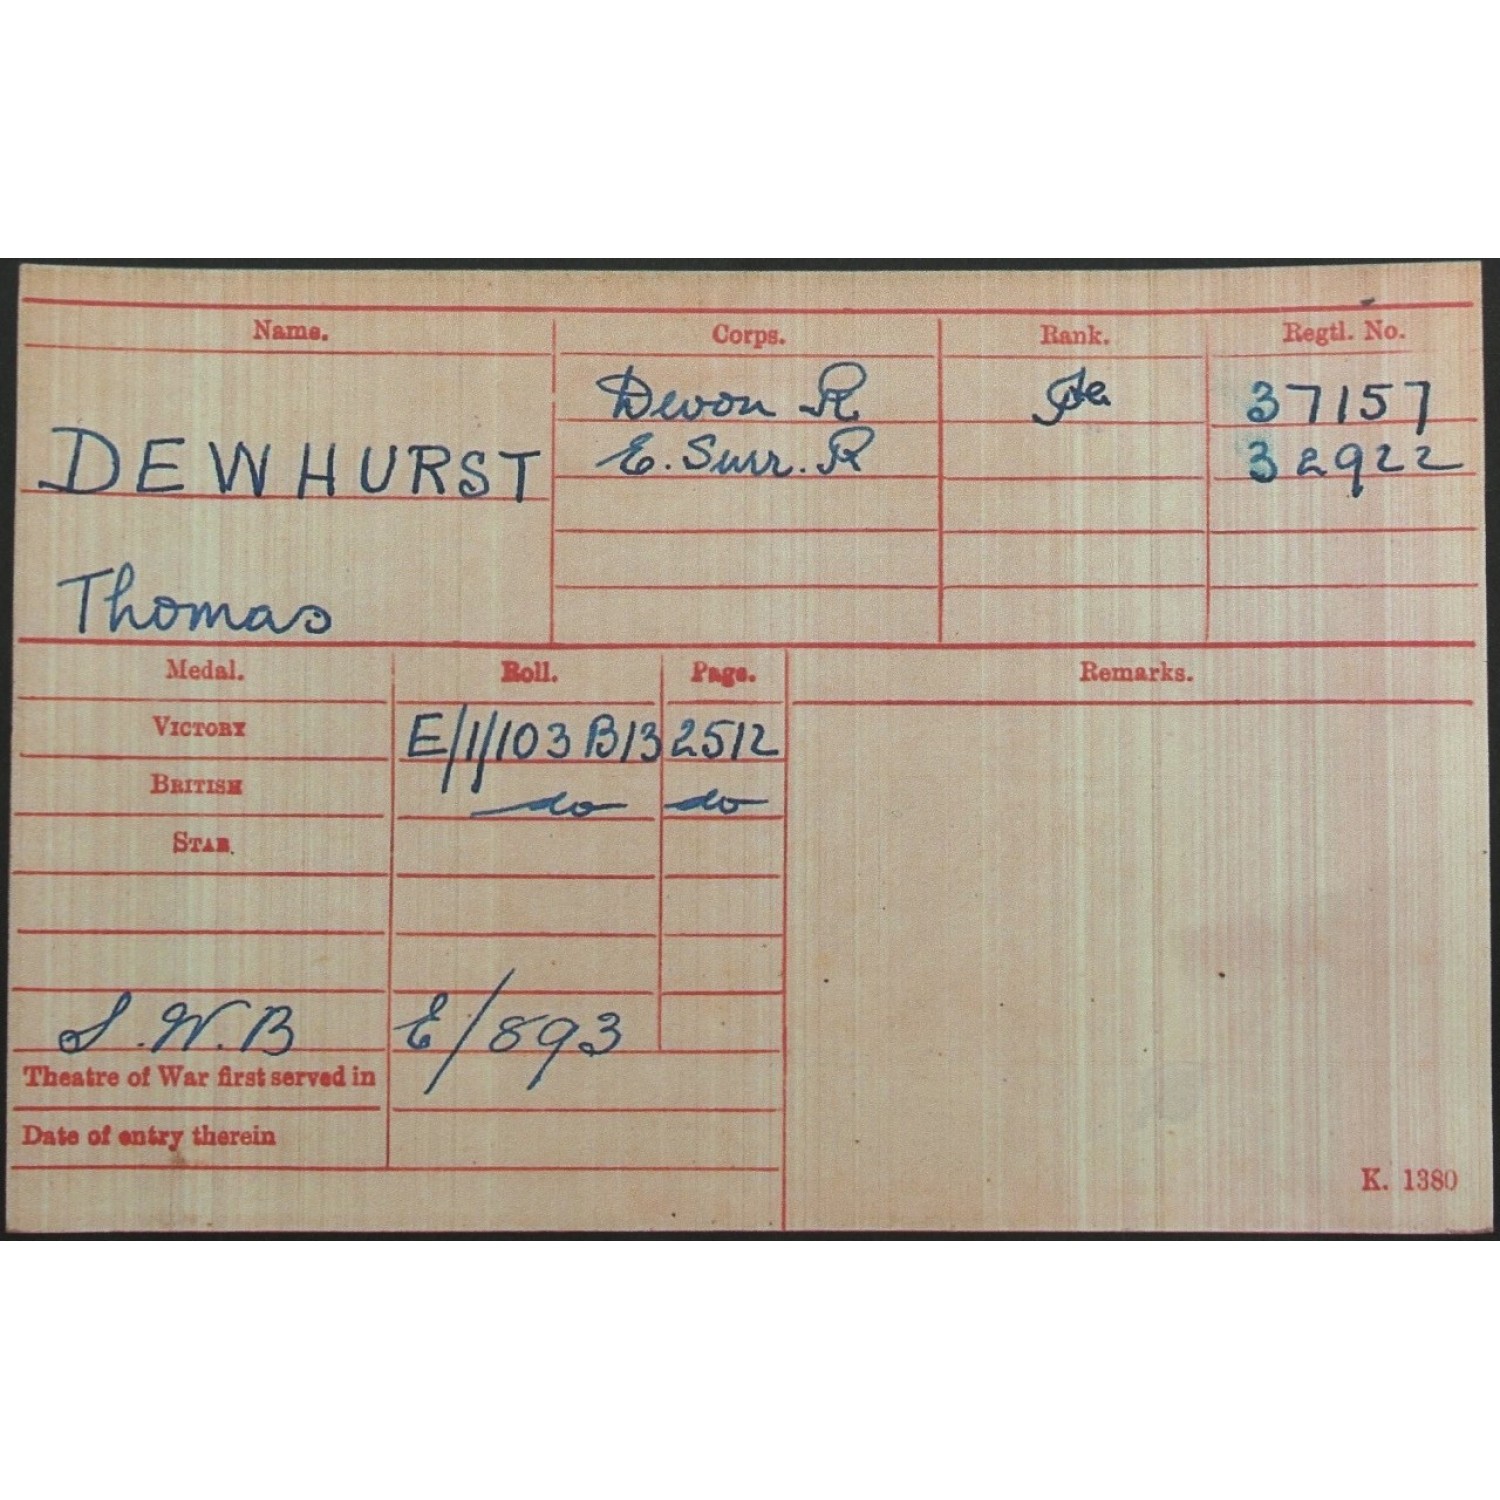 Name. Corps. Rank. Regtl. No.
Devon R Pte 37157
DEWHURST E. Surr. R 32922
Thomas
Medal. Roll. Page. Remarks.
VICTORY E/1/103 B13 2512
BRITISH do do
STAR.
S.W.B E/893
Theatre of War first served in
Date of entry therein
K. 1380